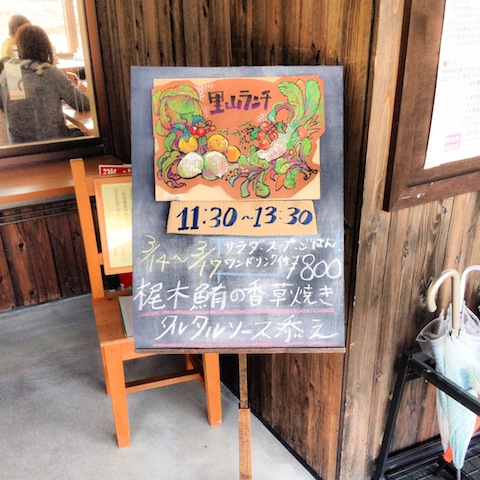 里山ランチ
11:30~13:30
3/14~3/17
サラダ・スープ・ごはん
ワンドリンク付 ¥800
梶木鮪の香草焼き
タルタルソース添え